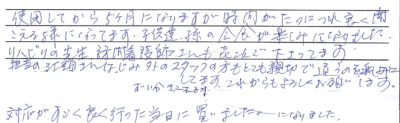 使用してから5ヶ月になりますが時間がたつにつれ良く聞
こえる様になってます。子供達、孫の会合が楽しみになりました。
リハビリの先生、訪問看護師さんも喜んで下さってます。
担当の さんはじめ外のスタッフの方もとても親切で通うのも楽しみに
してます。これからもよろしくお願いします。
対応がすごく良く行った当日に買いました。 になりました。